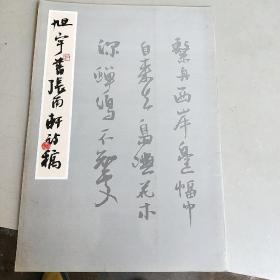 旭宇書張南軒詩稿
繫舟西岸邊幅巾
自來去島嶼花木
深蟬鳴不知處